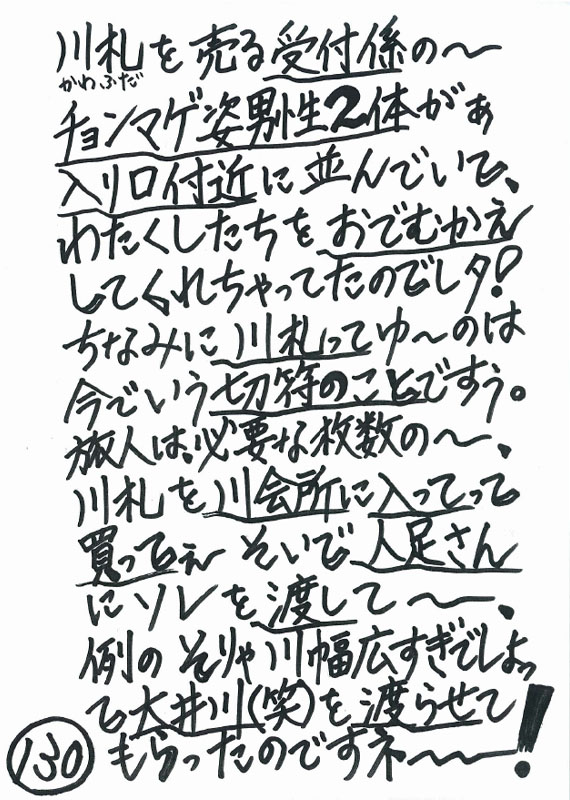 川札を売る受付係の〜
かわふだ
チョンマゲ姿男性2体がぁ
入り口付近に並んでいて、
わたくしたちをおでむかえ
してくれちゃってたのでしタ!
ちなみに川札ってゆ〜のは
今でいう切符のことですぅ。
旅人は、必要な枚数の〜、
川札を川会所に入ってって
買ってぇ そいで人足さん
にソレを渡して〜、
例のそりゃ川幅広すぎでしょっ
て大井川(笑)を渡らせて
もらったのですネ〜〜!
130